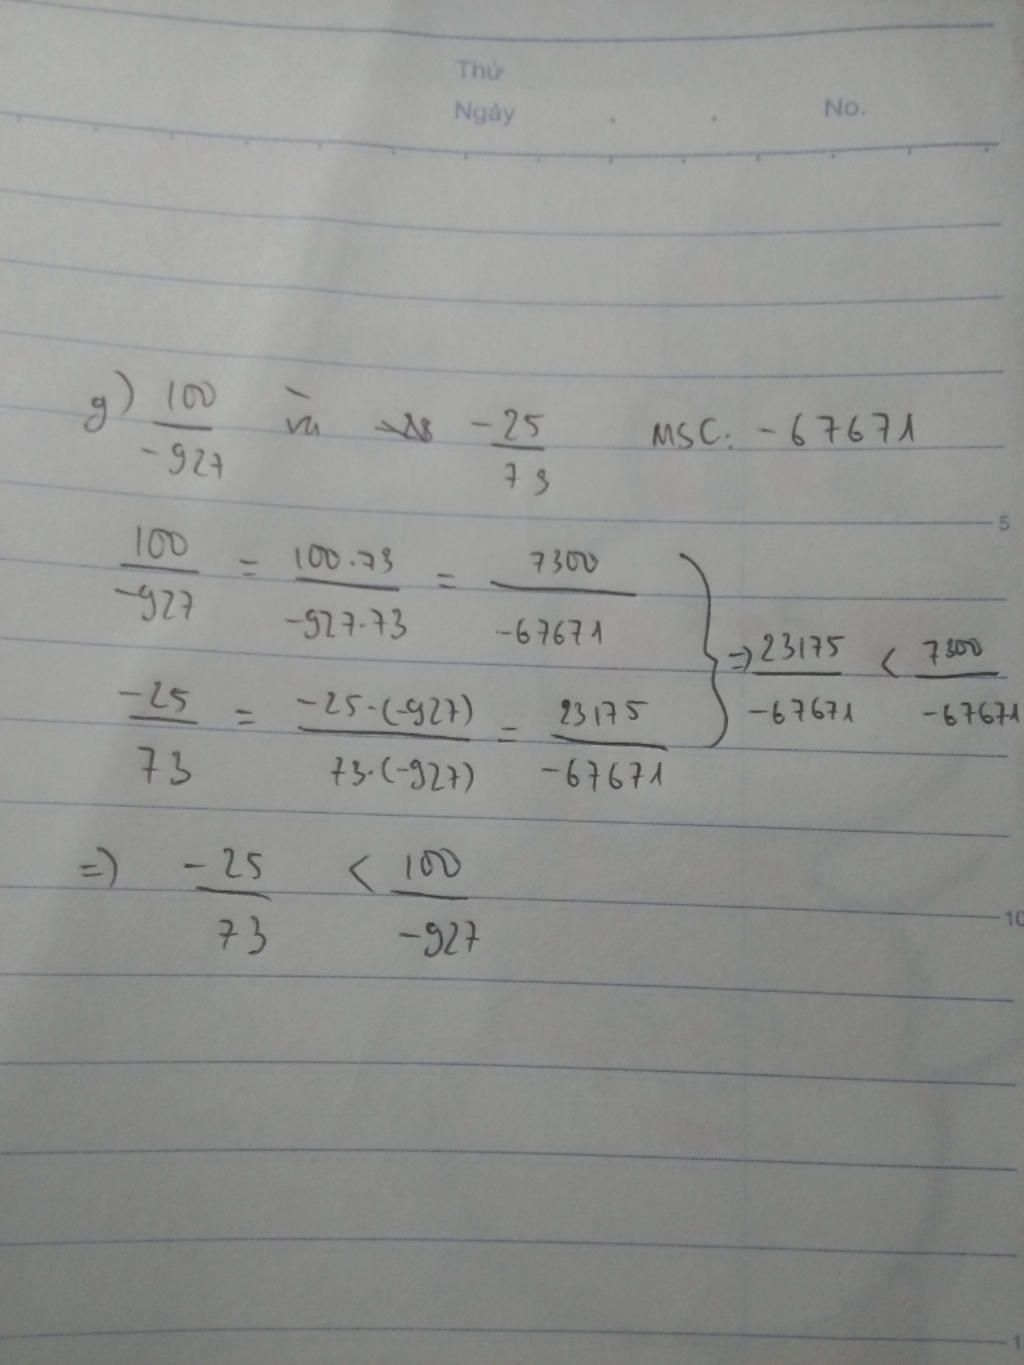 Thứ
Ngày . . No.
g) 100/-927 và -25/73 MSC: -67671
5
100/-927 = 100.73/-927.73 = 7300/-67671
-25/73 = -25.(-927)/73.(-927) = 23175/-67671
} => 23175/-67671 < 7300/-67671
=> -25/73 < 100/-927
10